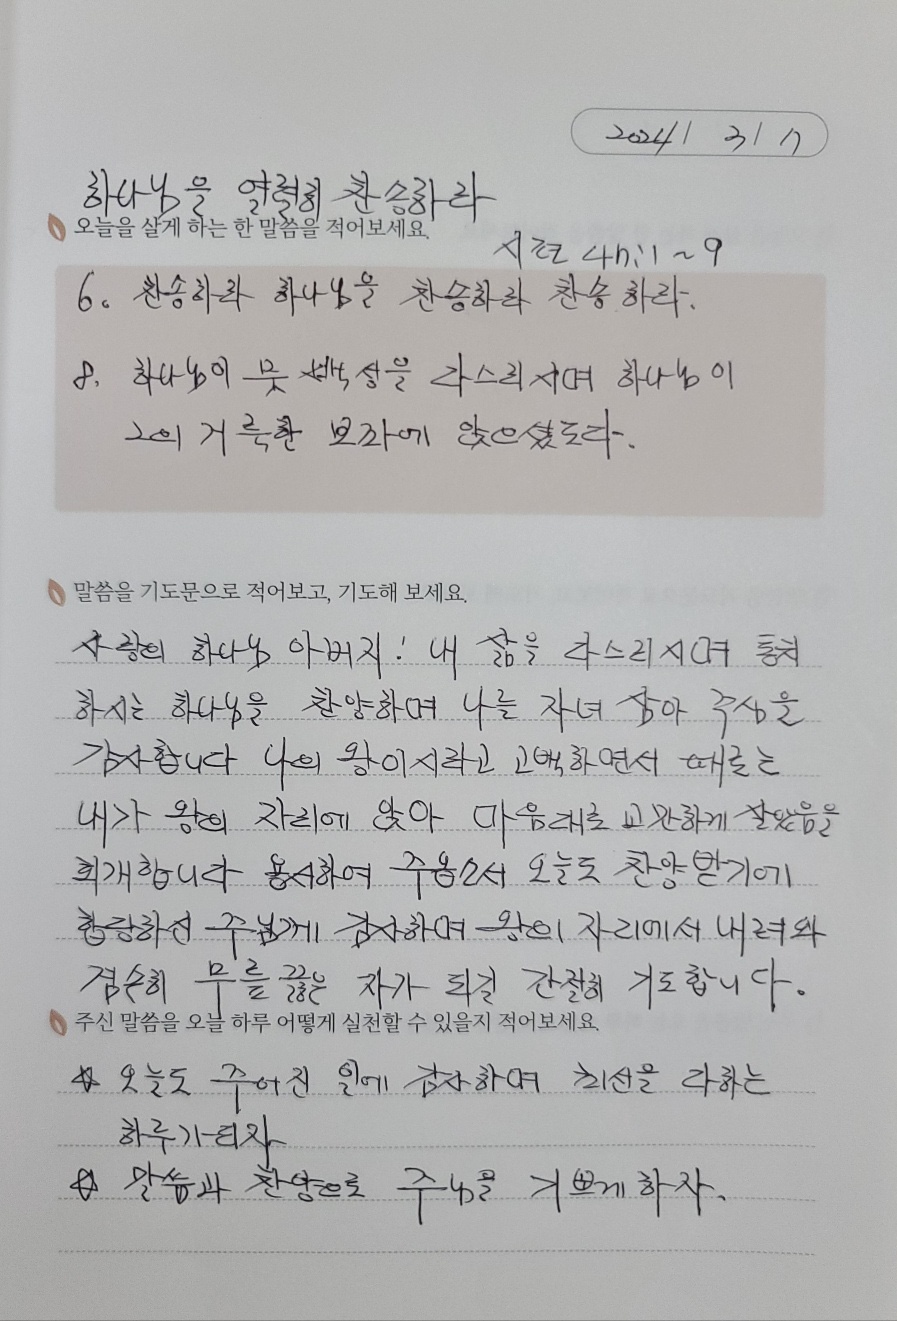 2024/ 3/ 7
하나님을 열렬히 찬송하라
오늘을 살게 하는 한 말씀을 적어보세요.
시편 47:1~9
6. 찬송하라 하나님을 찬송하라 찬송하라.
8. 하나님이 뭇 백성을 다스리시며 하나님이
그의 거룩한 보좌에 앉으셨도다.
말씀을 기도문으로 적어보고, 기도해 보세요.
사랑의 하나님 아버지! 내 삶을 다스리시며 통치
하시는 하나님을 찬양하며 나를 자녀 삼아 주심을
감사합니다 나의 왕이시라고 고백하면서 때로는
내가 왕의 자리에 앉아 마음대로 교만하게 살았음을
회개합니다 용서하여 주옵소서 오늘도 찬양받기에
합당하신 주님께 감사하며 왕의 자리에서 내려와
겸손히 무릎 꿇는 자가 되길 간절히 기도합니다.
주신 말씀을 오늘 하루 어떻게 실천할 수 있을지 적어보세요.
☆ 오늘도 주어진 일에 감사하며 최선을 다하는
하루가 되자
☆ 말씀과 찬양으로 주님을 기쁘게 하자.